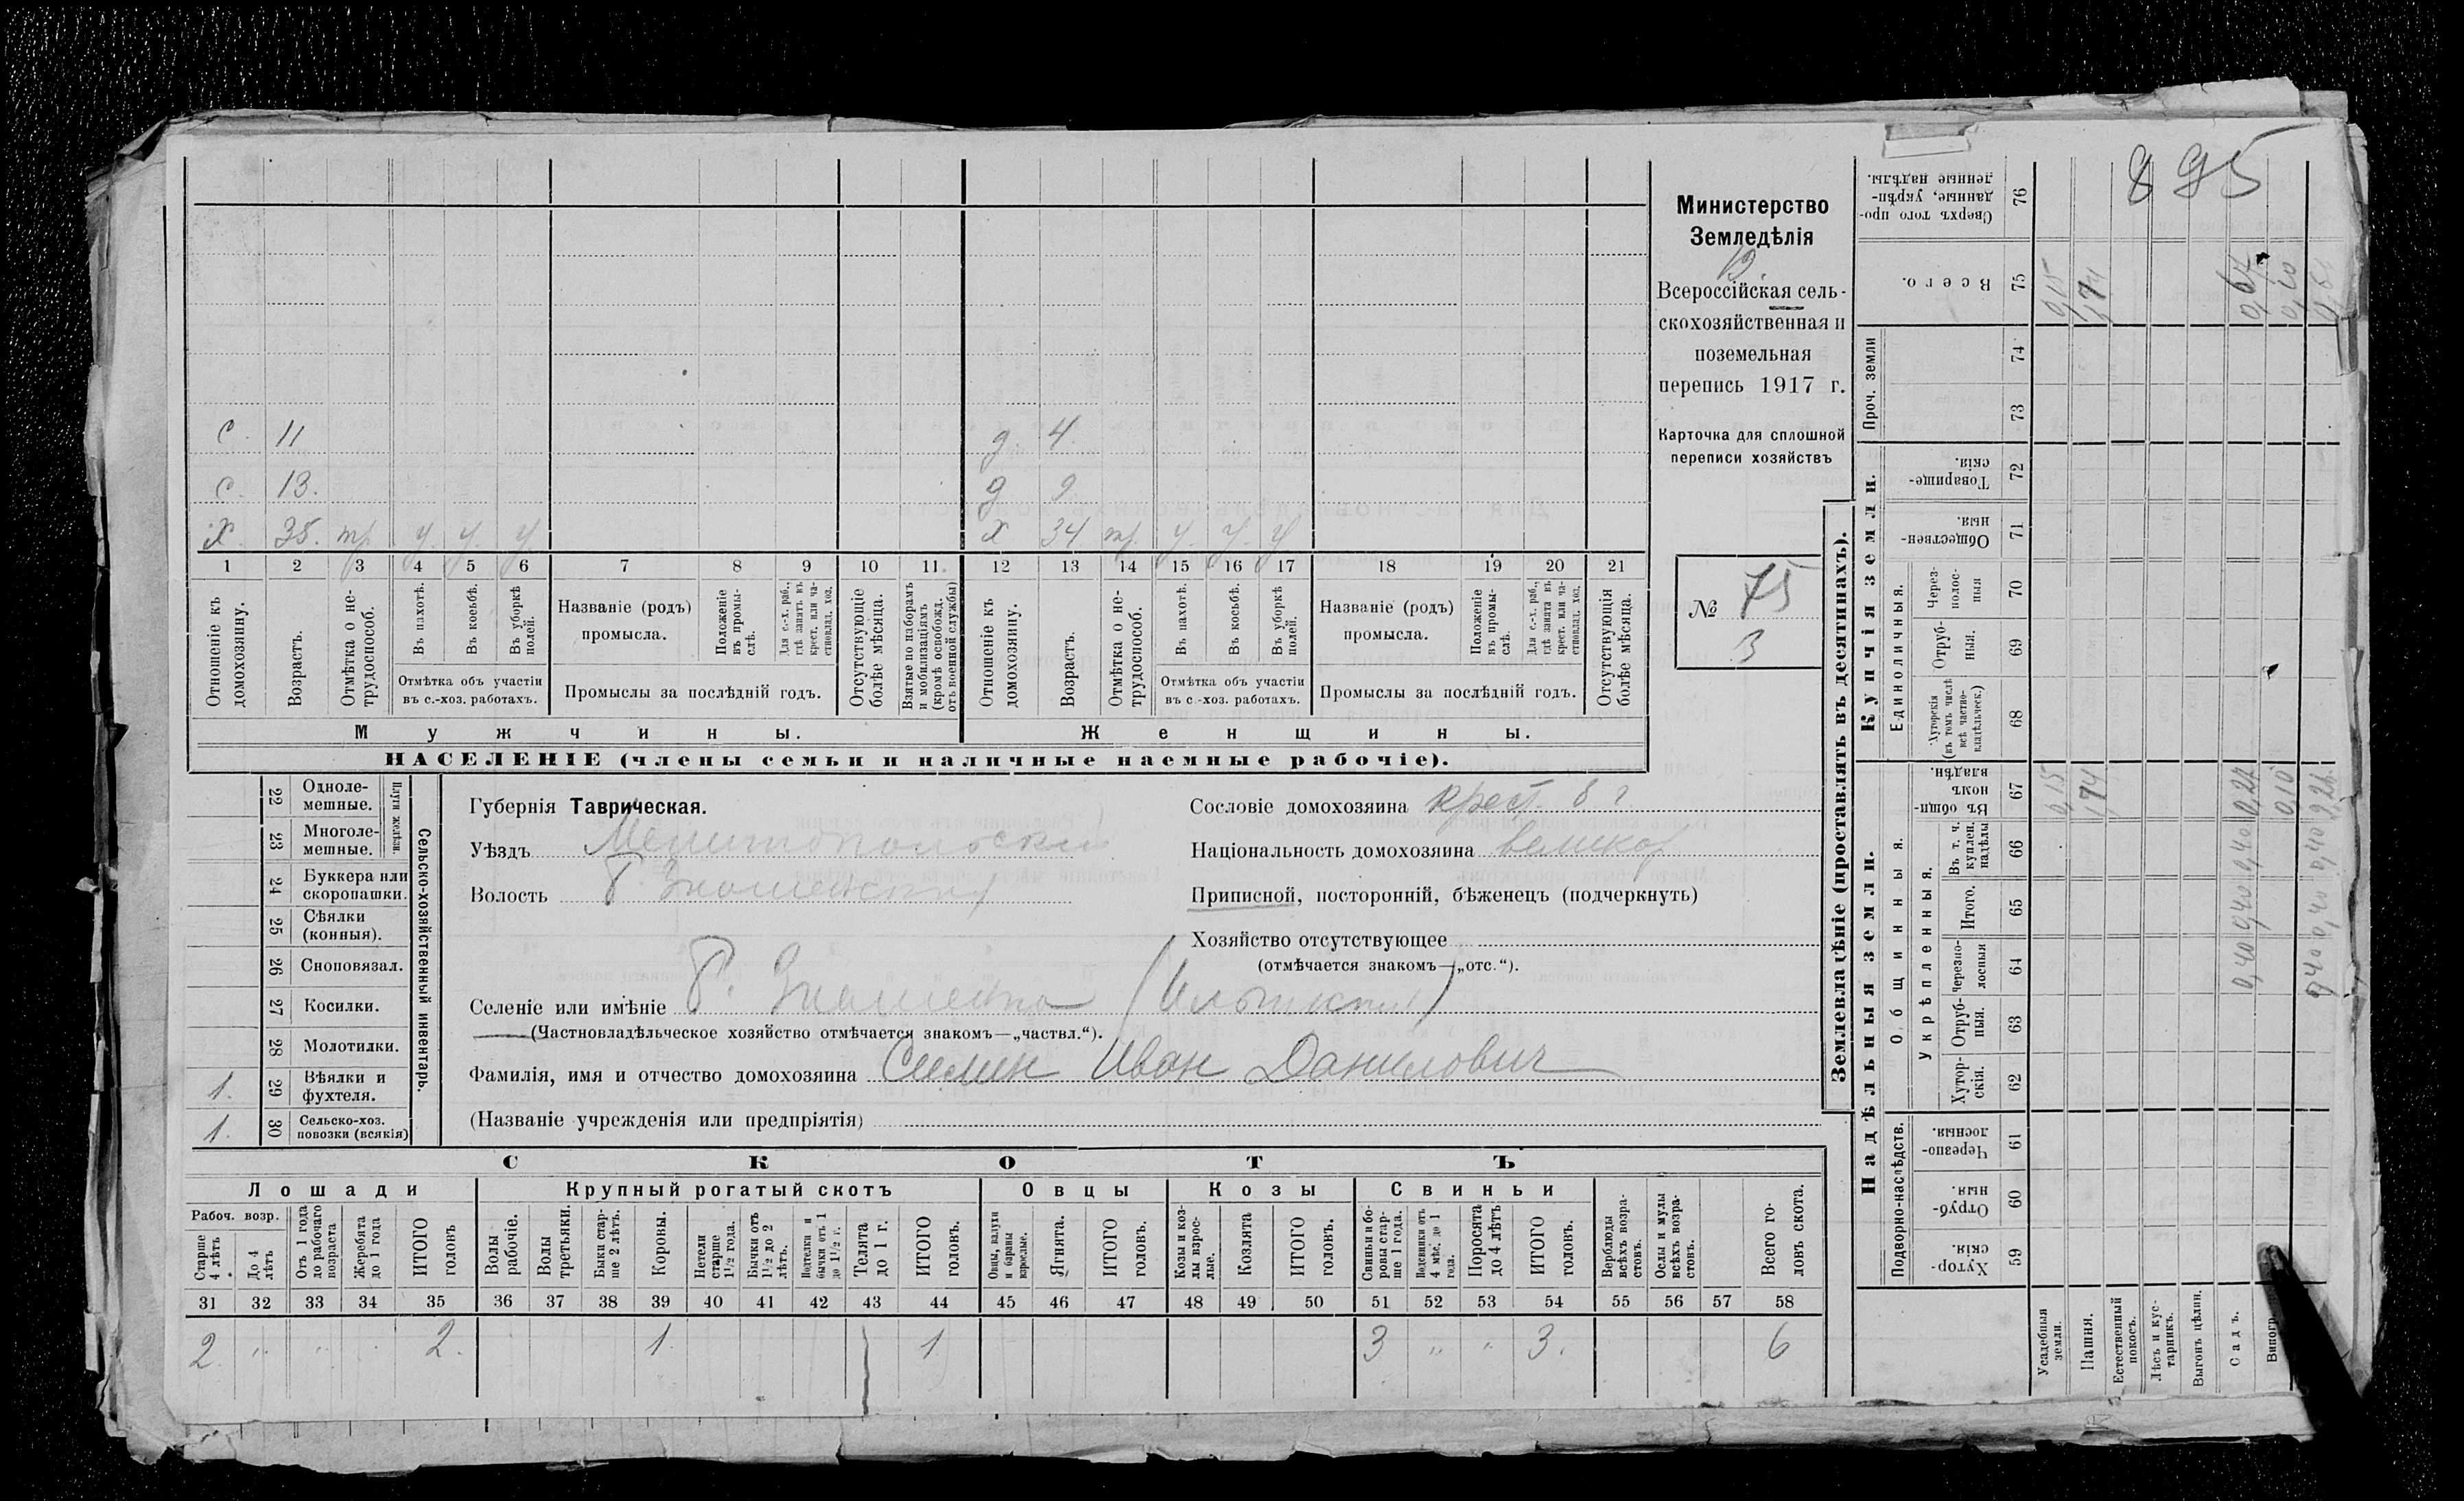 895
Министерство
Земледѣлія
Всероссійская сель-
скохозяйственная и
поземельная
перепись 1917 г.
Карточка для сплошной
переписи хозяйствъ
№ 75
3
с. 11 д. 4
с. 13. д 9
х. 35. тр. у. у. у х 34 тр. у. у. у
1 2 3 4 5 6 7 8 9 10 11. 12 13 14 15 16 17 18 19 20 21
Отношеніе къ домохозяину.
Возрастъ.
Отмѣтка о не-трудоспособ.
Въ пахотѣ.
Въ косьбѣ.
Въ уборкѣ полей.
Отмѣтка объ участіи
въ с.-хоз. работахъ.
Названіе (родъ)
промысла.
Положеніе въ промы-слѣ.
Для с.-х. раб., гдѣ занятъ въ крест. или ча-стновлад. хоз.
Промыслы за послѣдній годъ.
Отсутствующіе болѣе мѣсяца.
Взятые по наборамъ и мобилизаціямъ (кромѣ освобожд. отъ военной службы)
Отношеніе къ домохозяину.
Возрастъ.
Отмѣтка о не-трудоспособ.
Въ пахотѣ.
Въ косьбѣ.
Въ уборкѣ полей.
Отмѣтка объ участіи
въ с.-хоз. работахъ.
Названіе (родъ)
промысла.
Положеніе въ промы-слѣ.
Для с.-х. раб., гдѣ занята въ крест. или ча-стновлад. хоз.
Промыслы за послѣдній годъ.
Отсутствующія болѣе мѣсяца.
Мужчины. Женщины.
НАСЕЛЕНІЕ (члены семьи и наличные наемные рабочіе).
22 Одноле-мешные.
23 Многоле-мешные.
Плуги желѣзн.
24 Буккера или скоропашки.
25 Сѣялки (конныя).
26 Сноповязал.
27 Косилки.
28 Молотилки.
1. 29 Вѣялки и фухтеля.
1. 30 Сельско-хоз. повозки (всякія)
Сельско-хозяйственный инвентарь.
Губернія Таврическая.
Уѣздъ Мелитопольскій
Волость Б. Знаменская
Сословіе домохозяина крест. б г
Національность домохозяина великор
Приписной, посторонній, бѣженецъ (подчеркнуть)
Хозяйство отсутствующее
(отмѣчается знакомъ—„отс.“).
Селеніе или имѣніе Б. Знаменка
(Частновладѣльческое хозяйство отмѣчается знакомъ—„частвл.“).
Фамилія, имя и отчество домохозяина Силин Иван Данилович
(Названіе учрежденія или предпріятія)
СКОТЪ
Лошади Крупный рогатый скотъ Овцы Козы Свиньи
Рабоч. возр.
Старше 4 лѣтъ
До 4 лѣтъ
Отъ 1 года до рабочаго возраста
Жеребята до 1 года
ИТОГО головъ
Волы рабочіе.
Волы третьяки.
Быки стар-ше 2 лѣтъ.
Коровы.
Нетели старше 1½ года.
Бычки отъ 1½ до 2 лѣтъ.
Подтелки и бычки отъ 1 до 1½ г.
Телята до 1 г.
ИТОГО головъ.
Овцы, валухи и бараны взрослые.
Ягнята.
ИТОГО головъ.
Козы и коз-лы взрос-лые.
Козлята
ИТОГО головъ.
Свиньи и бо-ровы стар-ше 1 года.
Подсвинки отъ 4 мѣс. до 1 года.
Поросята до 4 лѣтъ
ИТОГО головъ.
Верблюды всѣхъ возра-стовъ.
Ослы и мулы всѣхъ возра-стовъ.
Всего го-ловъ скота.
31 32 33 34 35 36 37 38 39 40 41 42 43 44 45 46 47 48 49 50 51 52 53 54 55 56 57 58
2 " " " 2. 1. 1 3 " " 3. 6
Землевладѣніе (проставлять въ десятинахъ).
Надѣльныя земли. Купчія земли.
Подворно-наслѣдств.
Общинныя.
Укрѣпленныя.
Единоличныя.
Проч. земли
Хутор-скія. 59
Отруб-ныя. 60
Черезпо-лосныя. 61
Хутор-скія. 62
Отруб-ныя. 63
Черезпо-лосныя 64
Итого. 65
Въ т. ч. куплен. надѣлы 66
Въ общи-номъ владѣн. 67
Хуторскія (въ томъ числѣ всѣ частно-владѣльческ.) 68
Отруб-ныя. 69
Через-полос-ныя 70
Обществен-ныя. 71
Товарище-скія. 72
73
74
Всего. 75
Сверхъ того про-данные, укрѣп-ленные надѣлы. 76
Усадебныя земли. 0,15 0,15
Пашня. 1,74 1,74
Естественный покосъ.
Лѣсъ и кус-тарникъ.
Выгонъ цѣлин.
Садъ. 0,40 0,40 0,40 0,27 0,67
Виногр. 0,10 0,10
0,40 0,40 0,40